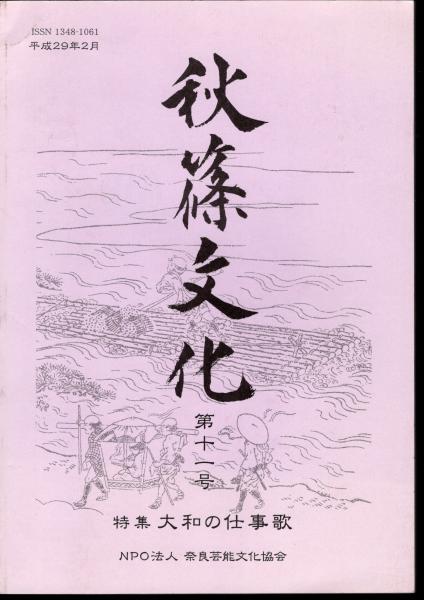 ISSN 1348-1061
平成29年2月
秋篠文化
第十一号
特集 大和の仕事歌
NPO法人 奈良芸能文化協会